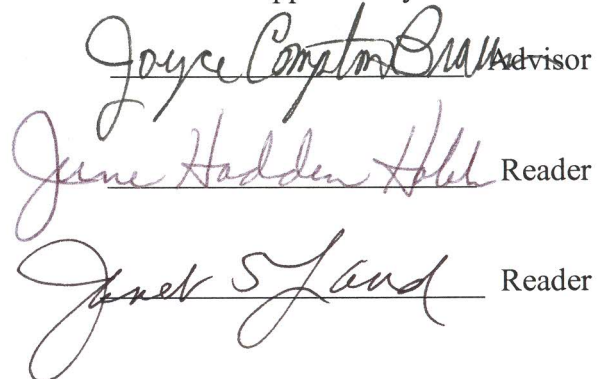 Joyce Compton Brown Advisor
June Hadden Hobbs Reader
Janet S Land Reader